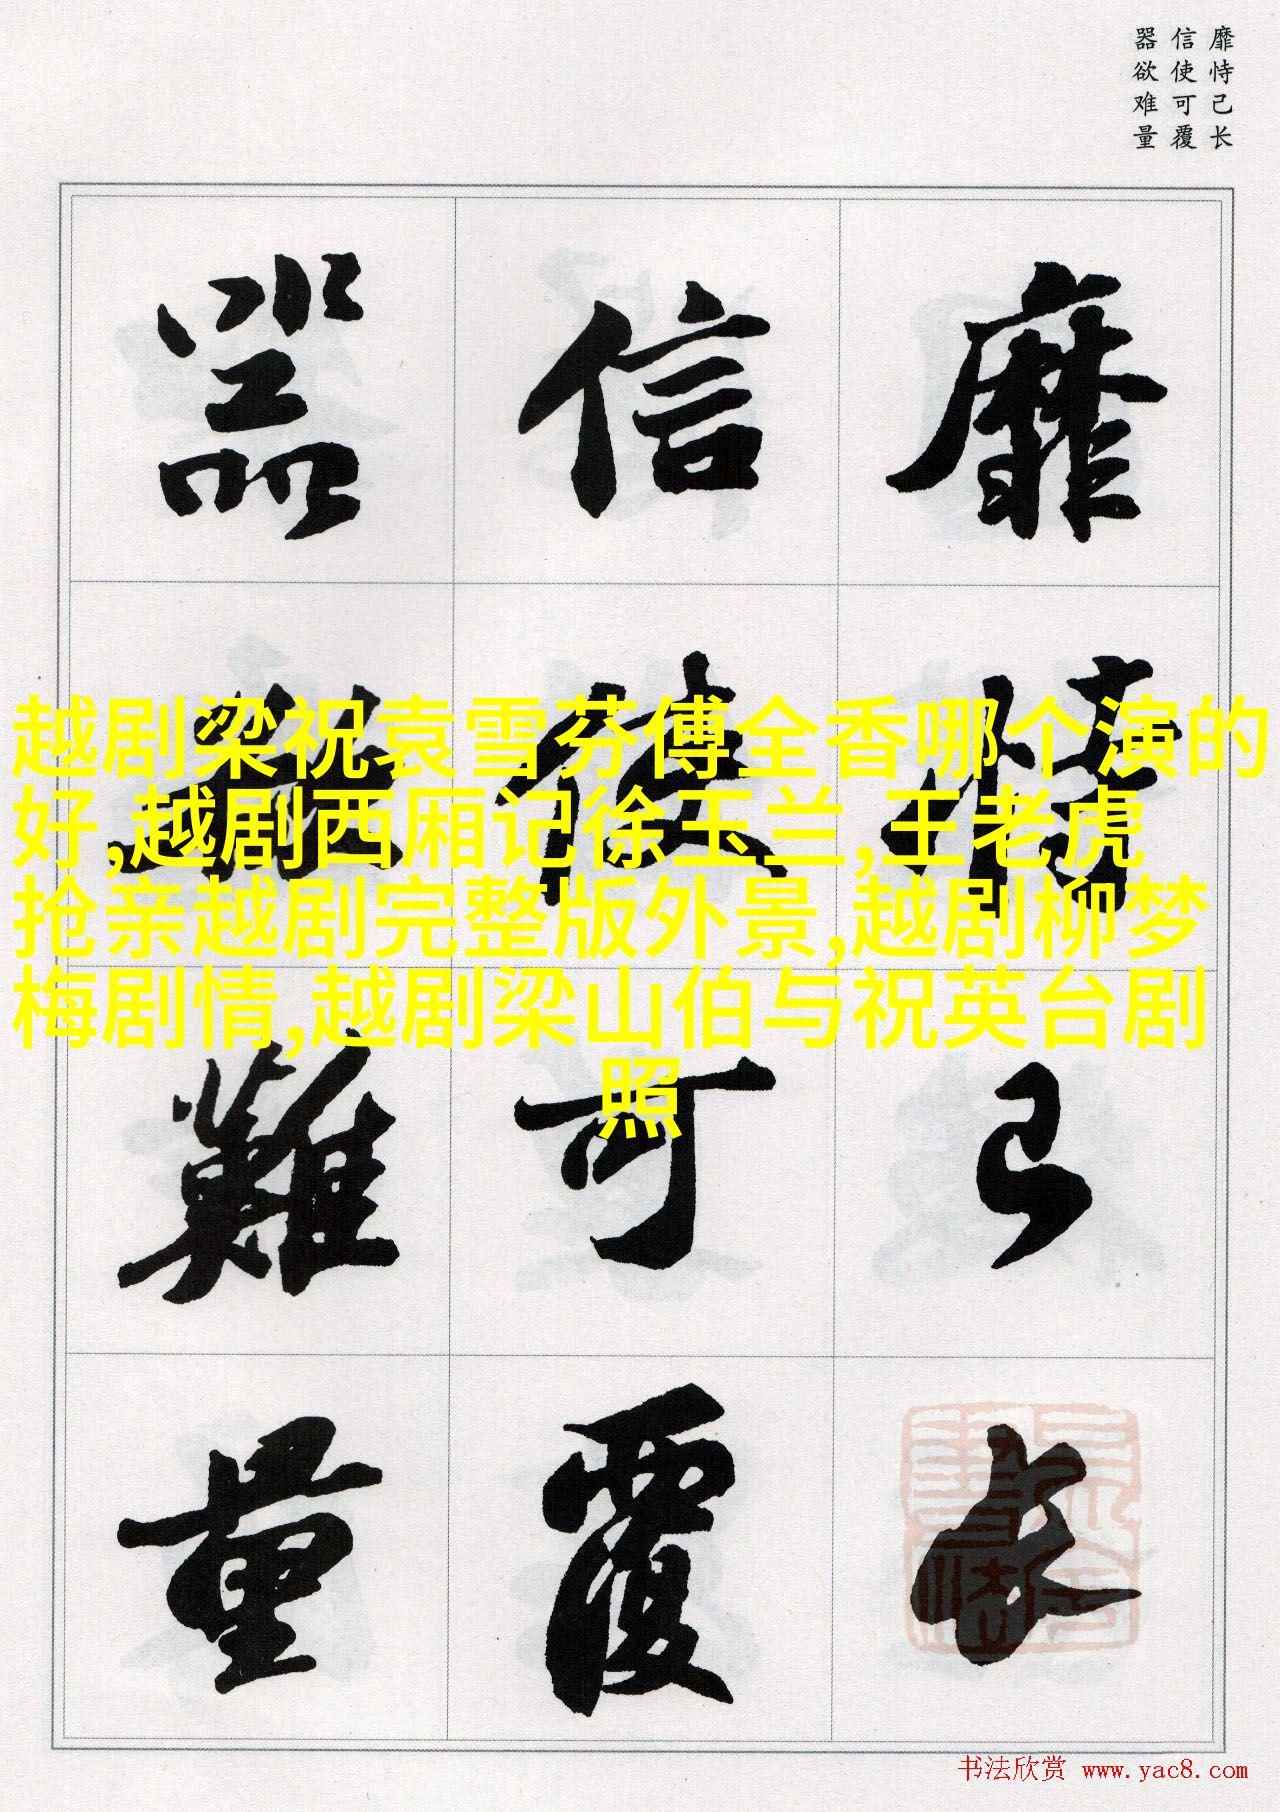 靡恃己长
信使可覆
器欲难量
靡恃己长
信使可覆
器欲難量
越剧梁祝袁雪芬傅全香哪个演的
好,越剧西厢记徐玉兰,王老虎
抢亲越剧完整版外景,越剧柳梦
梅剧情,越剧梁山伯与祝英台剧
照
书法欣赏 www.yac8.com